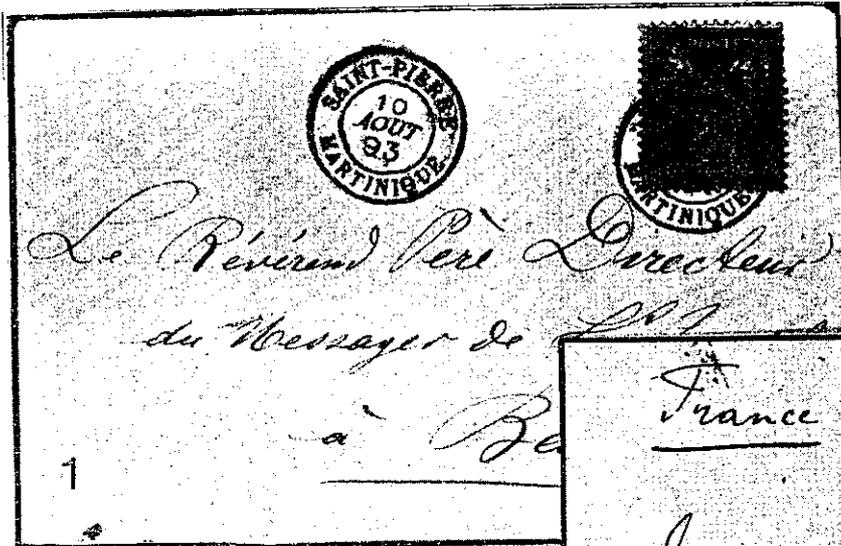 SAINT-PIERRE
10
AOUT
93
MARTINIQUE
MARTINIQUE
Le Révérend Père Directeur
du Messager de
à Be
France
1